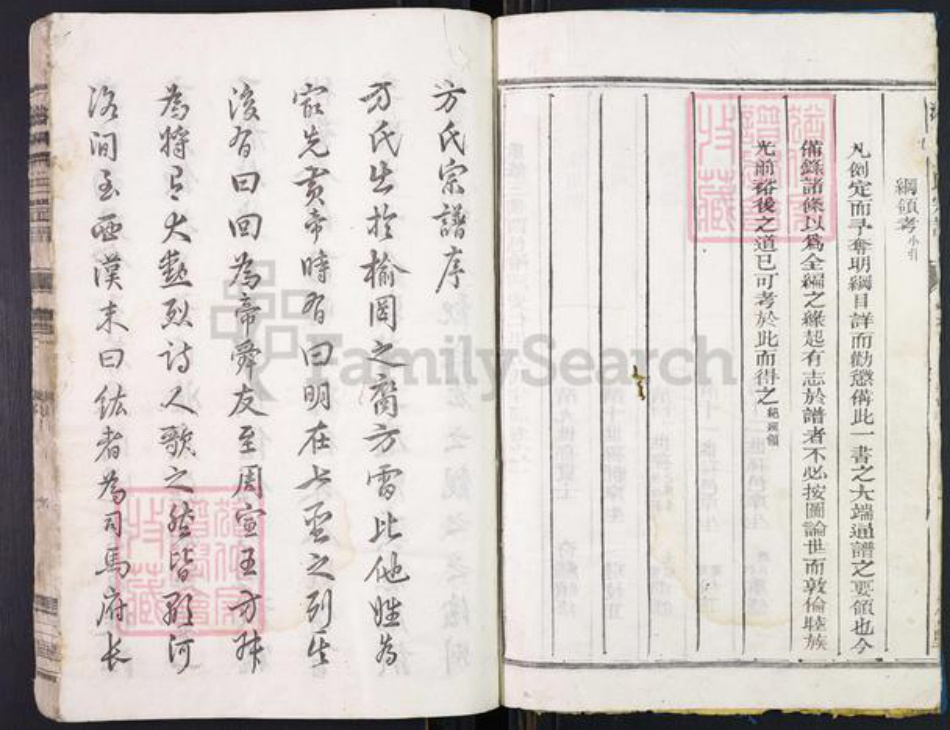 綱領考小引
凡例定而予奪明綱目詳而勸懲備此一書之大端通譜之要領也今
備錄諸條以爲全編之緣起有志於譜者不必按圖論世而敦倫睦族
光前裕後之道已可考於此而得之
方氏宗譜序
方氏出於榆罔之裔方雷比他姓為
最先黃帝時有曰明在七聖之列其
後有曰回為帝舜友至周宣王方叔
為將有大勳烈詩人歌之然皆顯河
洛间至西漢末曰紘者為司馬府长
FamilySearch